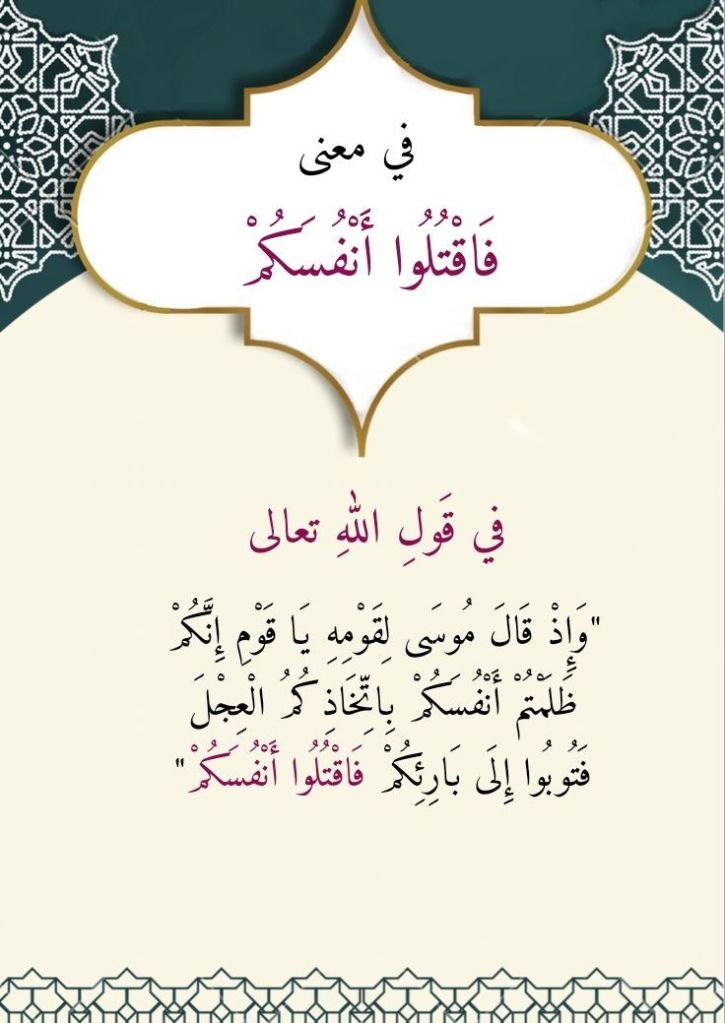 في معنى
فَاقْتُلُوا أَنْفُسَكُمْ
في قَولِ اللهِ تعالى
"وَإِذْ قَالَ مُوسَى لِقَوْمِهِ يَا قَوْمِ إِنَّكُمْ
ظَلَمْتُمْ أَنْفُسَكُمْ بِاتِّخَاذِكُمُ الْعِجْلَ
فَتُوبُوا إِلَى بَارِئِكُمْ فَاقْتُلُوا أَنْفُسَكُمْ"